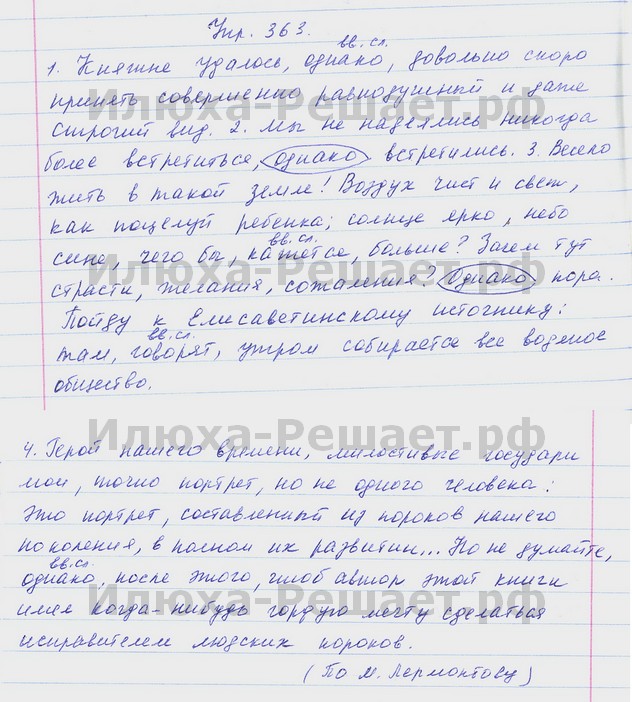 Упр. 363.
вв. сл.
1. Княжне удалось, однако, довольно скоро
принять совершенно равнодушный и даже
строгий вид. 2. Мы не надеялись никогда
более встретиться, однако встретились. 3. Весело
жить в такой земле! Воздух чист и свеж,
как поцелуй ребенка; солнце ярко, небо
вв. сл.
сине, чего бы, кажется, больше? Зачем тут
страсти, желания, сожаления? Однако пора.
Пойду к Елисаветинскому источнику:
вв. сл.
там, говорят, утром собирается все водяное
общество.
4. Герой нашего времени, милостивые государи
мои, точно портрет, но не одного человека:
это портрет, составленный из пороков нашего
поколения, в полном их развитии... Но не думайте,
вв. сл.
однако, после этого, чтоб автор этой книги
имел когда-нибудь гордую мечту сделаться
исправителем людских пороков.
(По М. Лермонтову)
Илюха-Решает.рф
Илюха-Решает.рф
Илюха-Решает.рф
Илюха-Решает.рф